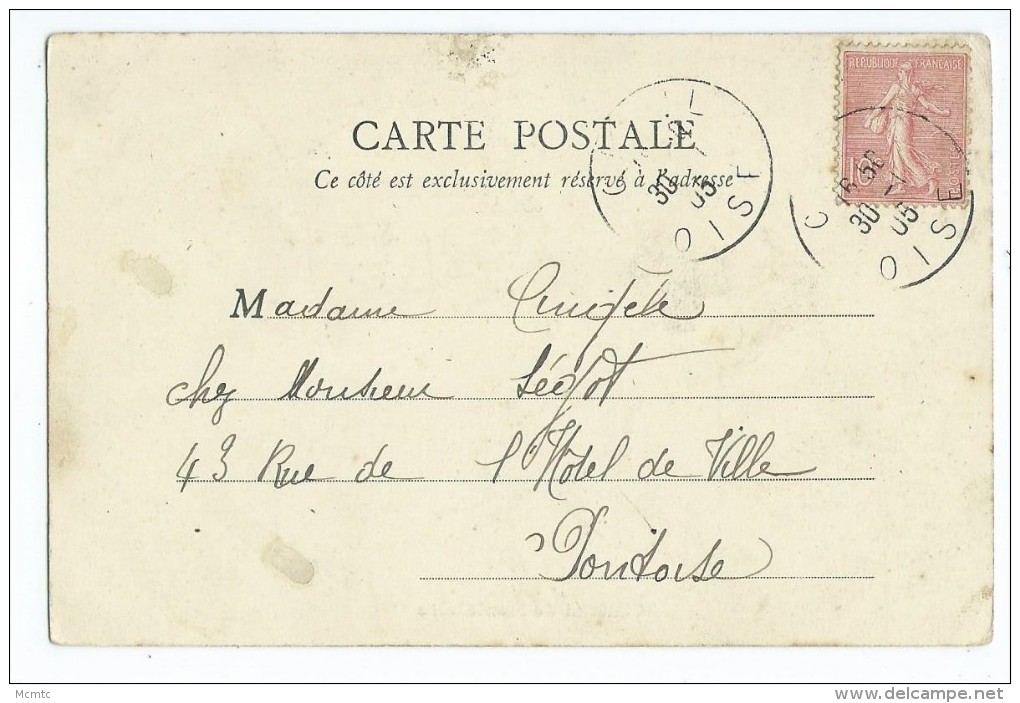 RÉPUBLIQUE FRANÇAISE
10
CARTE POSTALE
Ce côté est exclusivement réservé à l'adresse
30 - 1
05
OISE
30 - 1
05
OISE
Madame
chez Monsieur Légot
43 Rue de l'Hôtel de Ville
Pontoise
Mcmtc
www.delcampe.net